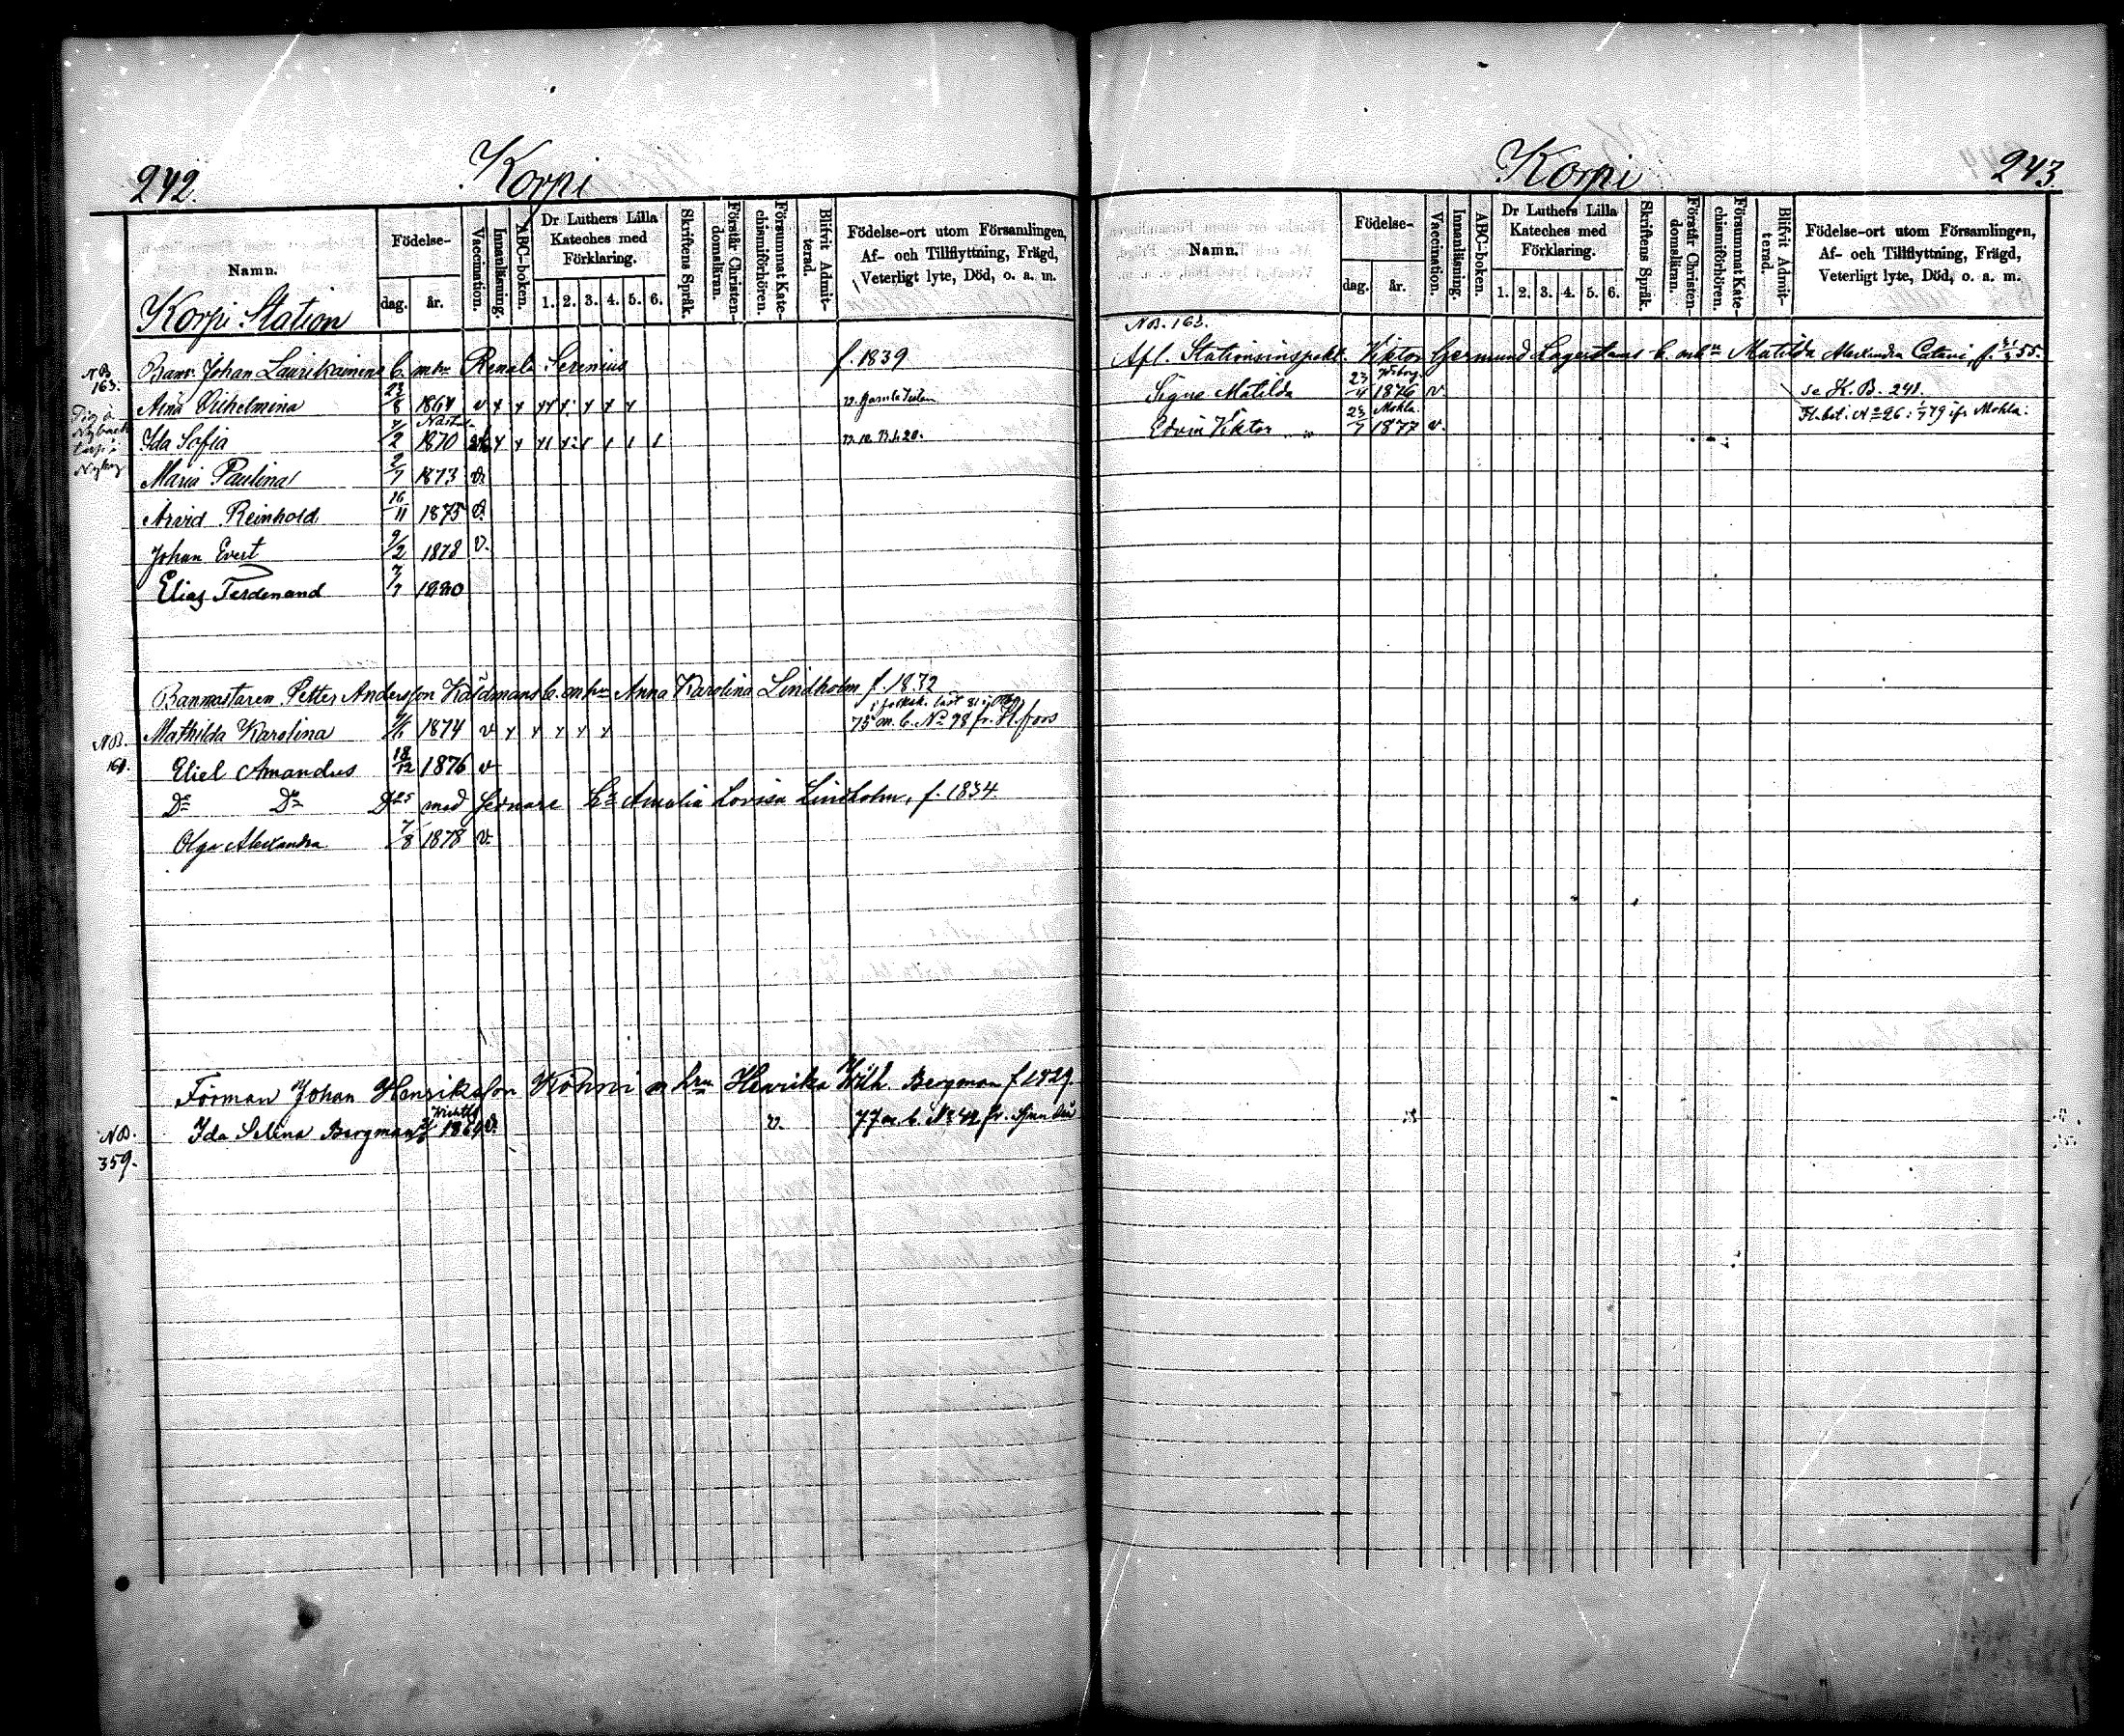 242.
Korpi
Namn.
Födelse-
dag.
år.
Vaccination.
Innanläsning.
ABC-boken.
Dr Luthers Lilla
Kateches med
Förklaring.
1. 2. 3. 4. 5. 6.
Skriftens Språk.
Förstår Christen-
domsläran.
Försummat Kate-
chismiförhören.
Blifvit Admit-
terad.
Födelse-ort utom Församlingen,
Af- och Tillflyttning, Frägd,
Veterligt lyte, Död, o. a. m.
Korpi Station
Johan Laurikainens b. m. hu Renata Serenius f. 1839
NB. 163.
Vilhelmina 23/8 v
Ida Sofia 7/2 1870
Maria Paulina 2/7 1873 v.
Arvid Reinhold 16/11 1875 v.
Johan Evert 9/2 1878 v.
Elias Ferdinand 7/7 1880
Banmästaren Petter Andersson b. m. hu Anna Karolina Lindholm f. 1832
Mathilda Karolina 1874 v 75 m. b. No 98 fr. H.fors
NB. 161.
Eliel Amandus 18/12 1876 v
Do Do med senare hu Amalia Lovisa Lindholm, f. 1834.
Olga Alexandra 7/8 1878 v.
Förman Johan Henriksson m hru Henrika Wilh. Bergman f 1829
Ida Selina Bergman v. v. 77 m. b. No 42 fr.
NB.
359.
Korpi
243.
Namn.
Födelse-
dag.
år.
Vaccination.
Innanläsning.
ABC-boken.
Dr Luthers Lilla
Kateches med
Förklaring.
1. 2. 3. 4. 5. 6.
Skriftens Språk.
Förstår Christen-
domsläran.
Försummat Kate-
chismiförhören.
Blifvit Admit-
terad.
Födelse-ort utom Församlingen,
Af- och Tillflyttning, Frägd,
Veterligt lyte, Död, o. a. m.
NB. 163.
Afl. Stationsinspekt. Viktor Germund Lagerstams b. m. hu Matilda Alexandra f. 55.
Signe Matilda 23/4 1876 v. se K.B. 241.
Edvin Viktor 23/7 Mohla. 1877 v. Fl.bet. No 26 79 ifr. Mohla.